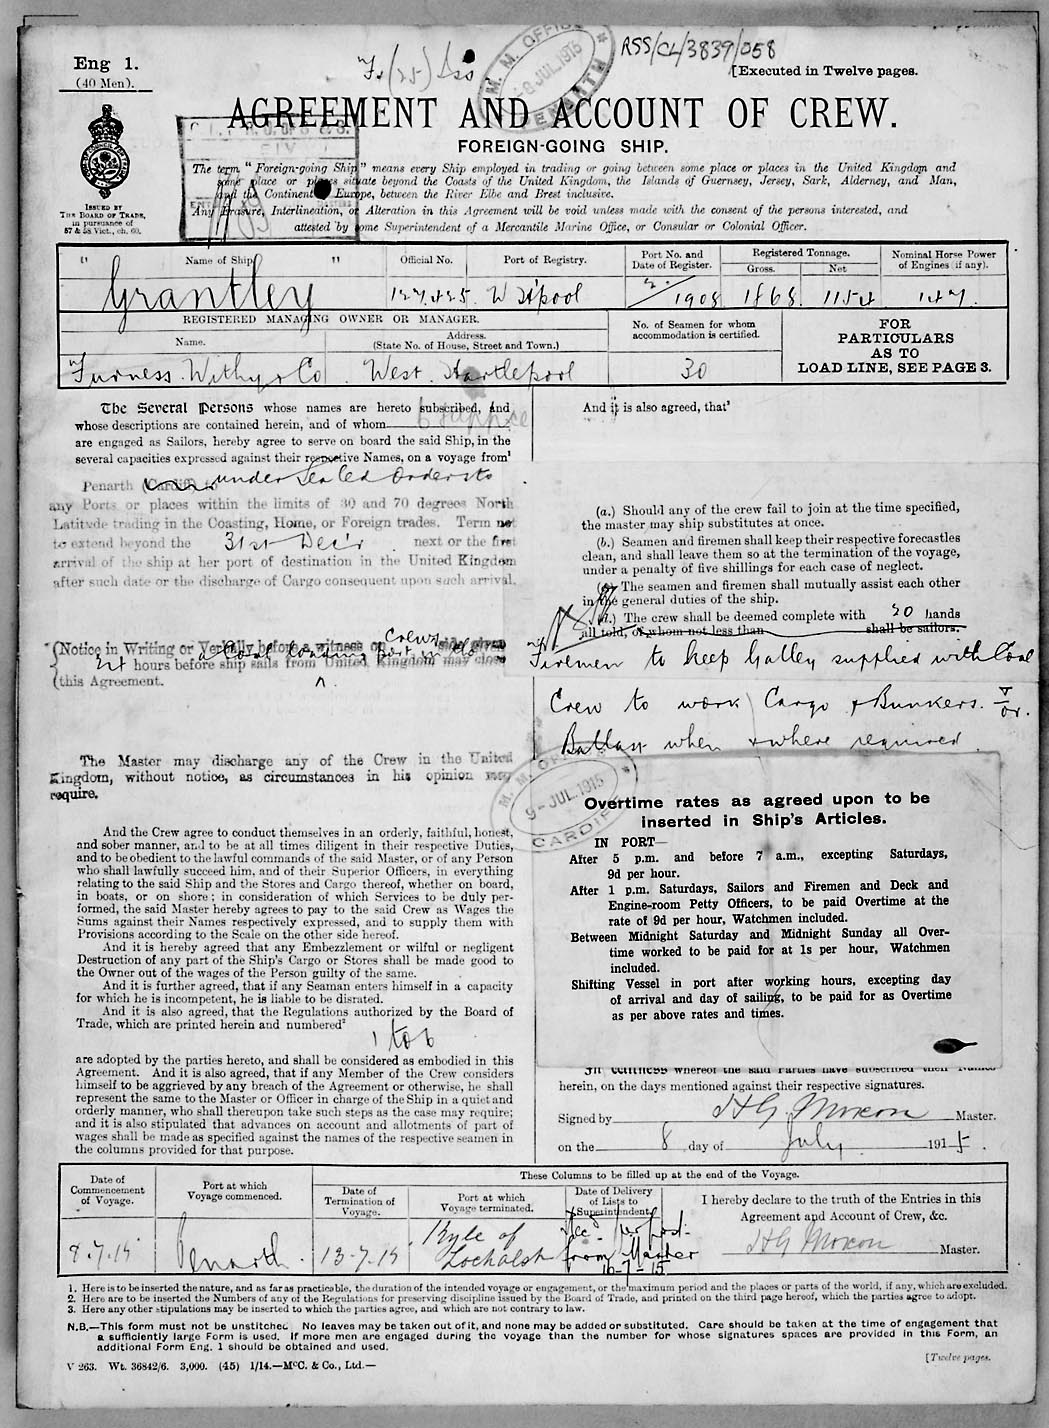 RSS/CL/3839/058
Eng 1.
(40 Men).
[Executed in Twelve pages.
M. M. OFFICE
8 JUL 1915
PENARTH
AGREEMENT AND ACCOUNT OF CREW.
FOREIGN-GOING SHIP.
The term "Foreign-going Ship" means every Ship employed in trading or going between some place or places in the United Kingdom and
some place or places situate beyond the Coasts of the United Kingdom, the Islands of Guernsey, Jersey, Sark, Alderney, and Man,
and the Continent of Europe, between the River Elbe and Brest inclusive.
Any Erasure, Interlineation, or Alteration in this Agreement will be void unless made with the consent of the persons interested, and
attested by some Superintendent of a Mercantile Marine Office, or Consular or Colonial Officer.
ISSUED BY
THE BOARD OF TRADE,
in pursuance of
57 & 58 Vict., ch. 60.
Name of Ship
Official No.
Port of Registry.
Port No. and
Date of Register.
Registered Tonnage.
Gross.
Net
Nominal Horse Power
of Engines (if any).
" Grantley "
127425
W H'pool
2/1908
1868
1154
147.
REGISTERED MANAGING OWNER OR MANAGER.
Name.
Address.
(State No. of House, Street and Town.)
No. of Seamen for whom
accommodation is certified.
FOR
PARTICULARS
AS TO
LOAD LINE, SEE PAGE 3.
Furness Withy & Co
West Hartlepool
30
The Several Persons whose names are hereto subscribed, and
whose descriptions are contained herein, and of whom
are engaged as Sailors, hereby agree to serve on board the said Ship, in the
several capacities expressed against their respective Names, on a voyage from¹
Penarth (Cardiff) to under Sealed Orders to
any Ports or places within the limits of 30 and 70 degrees North
Latitvde trading in the Coasting, Home, or Foreign trades. Term not
to extend beyond the 31st Dec'r next or the first
arrival of the ship at her port of destination in the United Kingdom
after such date or the discharge of Cargo consequent upon such arrival.
(Notice in Writing or Verbally before a witness or side given
hours before ship sails from United Kingdom may close
(this Agreement.
The Master may discharge any of the Crew in the United
Kingdom, without notice, as circumstances in his opinion may
require.
And the Crew agree to conduct themselves in an orderly, faithful, honest,
and sober manner, and to be at all times diligent in their respective Duties,
and to be obedient to the lawful commands of the said Master, or of any Person
who shall lawfully succeed him, and of their Superior Officers, in everything
relating to the said Ship and the Stores and Cargo thereof, whether on board,
in boats, or on shore; in consideration of which Services to be duly per-
formed, the said Master hereby agrees to pay to the said Crew as Wages the
Sums against their Names respectively expressed, and to supply them with
Provisions according to the Scale on the other side hereof.
And it is hereby agreed that any Embezzlement or wilful or negligent
Destruction of any part of the Ship's Cargo or Stores shall be made good to
the Owner out of the wages of the Person guilty of the same.
And it is further agreed, that if any Seaman enters himself in a capacity
for which he is incompetent, he is liable to be disrated.
And it is also agreed, that the Regulations authorized by the Board of
Trade, which are printed herein and numbered²
1 to 6
are adopted by the parties hereto, and shall be considered as embodied in this
Agreement. And it is also agreed, that if any Member of the Crew considers
himself to be aggrieved by any breach of the Agreement or otherwise, he shall
represent the same to the Master or Officer in charge of the Ship in a quiet and
orderly manner, who shall thereupon take such steps as the case may require;
and it is also stipulated that advances on account and allotments of part of
wages shall be made as specified against the names of the respective seamen in
the columns provided for that purpose.
And it is also agreed, that³
(a.) Should any of the crew fail to join at the time specified,
the master may ship substitutes at once.
(b.) Seamen and firemen shall keep their respective forecastles
clean, and shall leave them so at the termination of the voyage,
under a penalty of five shillings for each case of neglect.
(c.) The seamen and firemen shall mutually assist each other
in the general duties of the ship.
(d.) The crew shall be deemed complete with 20 hands
all told, of whom not less than shall be sailors.
Firemen to keep Galley supplied with Coal
Crew to work Cargo & Bunkers &/or.
Ballast when & where required
M. M. OFFICE
9 JUL. 1915
CARDIFF
Overtime rates as agreed upon to be
inserted in Ship's Articles.
IN PORT—
After 5 p.m. and before 7 a.m., excepting Saturdays,
9d per hour.
After 1 p.m. Saturdays, Sailors and Firemen and Deck and
Engine-room Petty Officers, to be paid Overtime at the
rate of 9d per hour, Watchmen included.
Between Midnight Saturday and Midnight Sunday all Over-
time worked to be paid for at 1s per hour, Watchmen
included.
Shifting Vessel in port after working hours, excepting day
of arrival and day of sailing, to be paid for as Overtime
as per above rates and times.
In Witness whereof the said Parties have subscribed their Names
herein, on the days mentioned against their respective signatures.
Signed by H G Moxon Master.
on the 8 day of July 1915.
Date of
Commencement
of Voyage.
Port at which
Voyage commenced.
These Columns to be filled up at the end of the Voyage.
Date of
Termination of
Voyage.
Port at which
Voyage terminated.
Date of Delivery
of Lists to
Superintendent.
I hereby declare to the truth of the Entries in this
Agreement and Account of Crew, &c.
8.7.15
Penarth.
13-7-15
Kyle of
Lochalsh
Rec'd per post
from Master
16-7-15
H G Moxon Master.
1. Here is to be inserted the nature, and as far as practicable, the duration of the intended voyage or engagement, or the maximum period and the places or parts of the world, if any, which are excluded.
2. Here are to be inserted the Numbers of any of the Regulations for preserving discipline issued by the Board of Trade, and printed on the third page hereof, which the parties agree to adopt.
3. Here any other stipulations may be inserted to which the parties agree, and which are not contrary to law.
N.B.—This form must not be unstitched. No leaves may be taken out of it, and none may be added or substituted. Care should be taken at the time of engagement that
a sufficiently large Form is used. If more men are engaged during the voyage than the number for whose signatures spaces are provided in this Form, an
additional Form Eng. 1 should be obtained and used.
V 263. Wt. 36842/6. 3,000. (45) 1/14.—McC. & Co., Ltd.—
[Twelve pages.